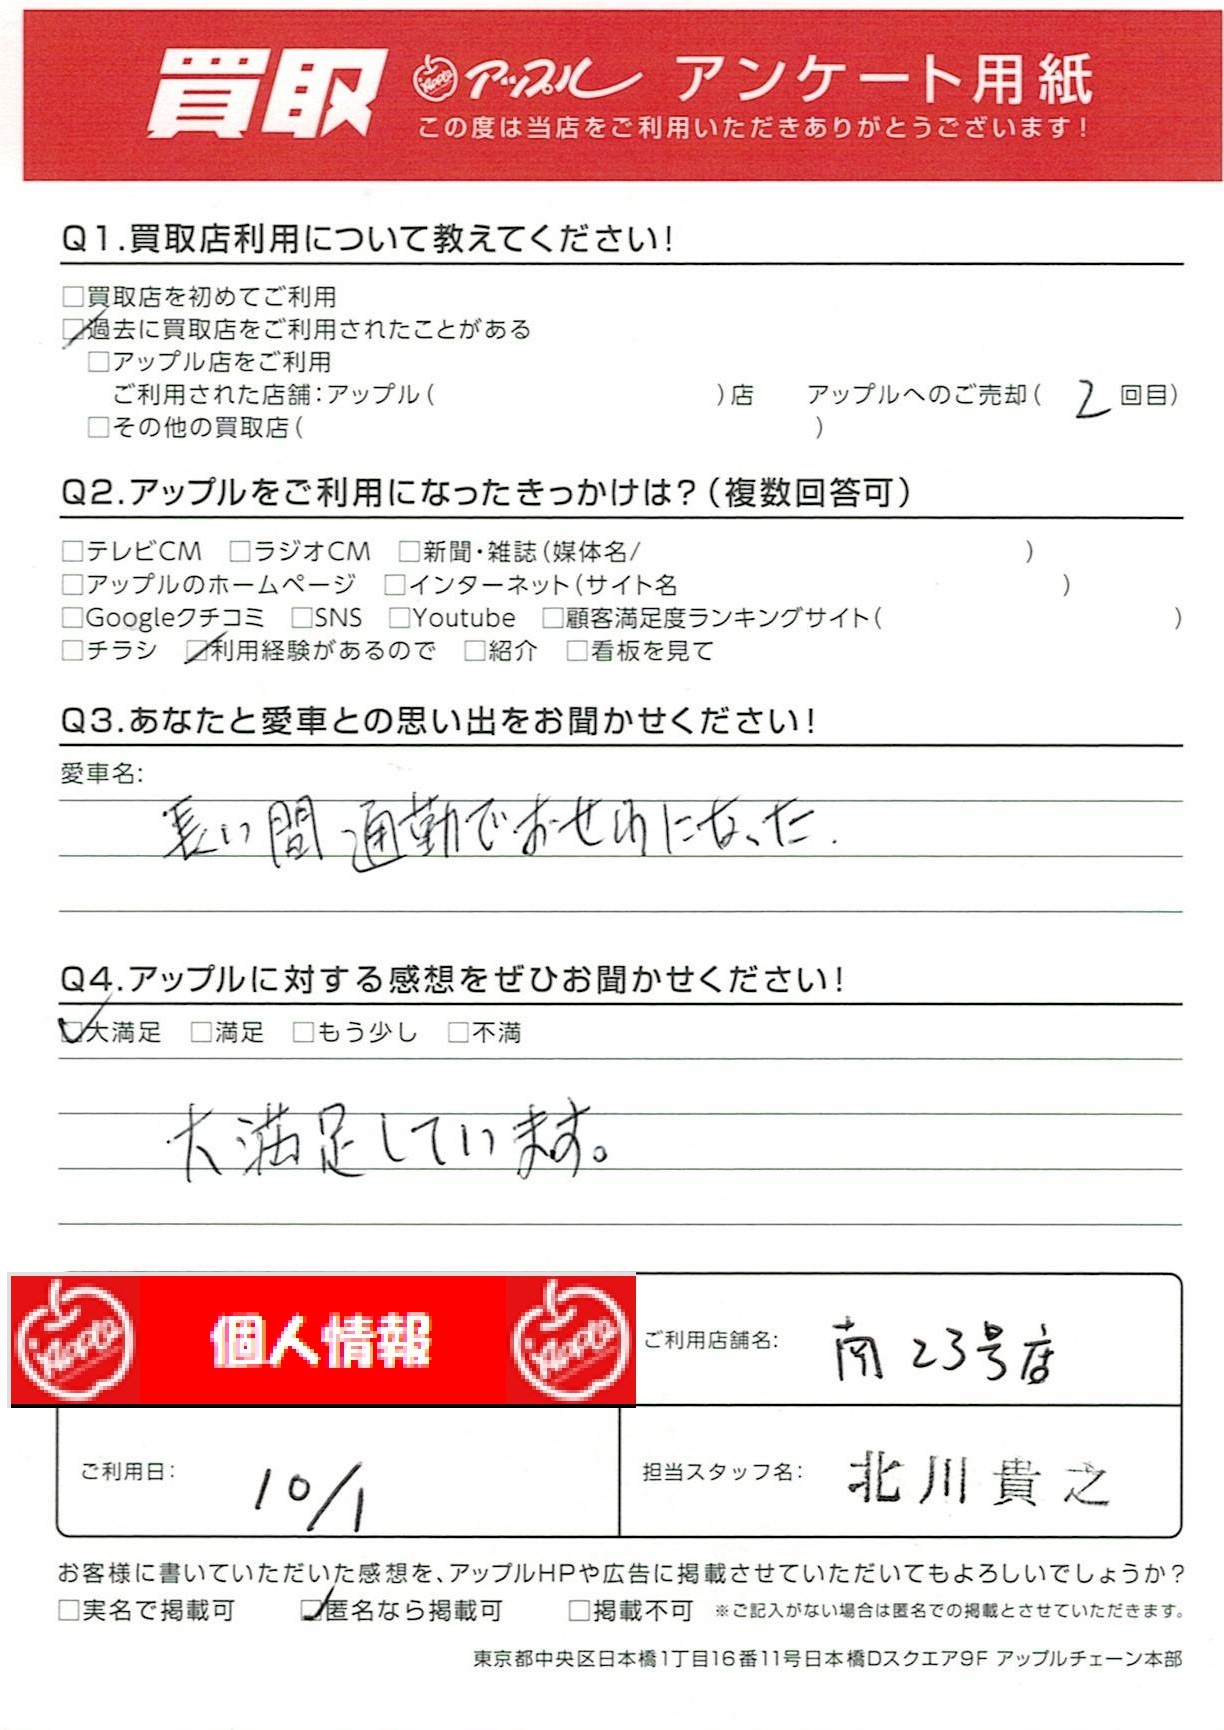 買取 アップル アンケート用紙
この度は当店をご利用いただきありがとうございます!
Q1.買取店利用について教えてください!
□買取店を初めてご利用
☑過去に買取店をご利用されたことがある
□アップル店をご利用
ご利用された店舗:アップル( )店 アップルへのご売却( 2 回目)
□その他の買取店( )
Q2.アップルをご利用になったきっかけは?(複数回答可)
□テレビCM □ラジオCM □新聞・雑誌(媒体名/ )
□アップルのホームページ □インターネット(サイト名 )
□Googleクチコミ □SNS □Youtube □顧客満足度ランキングサイト( )
□チラシ ☑利用経験があるので □紹介 □看板を見て
Q3.あなたと愛車との思い出をお聞かせください!
愛車名:
長い間通勤でおせわになった.
Q4.アップルに対する感想をぜひお聞かせください!
☑大満足 □満足 □もう少し □不満
大満足しています。
Apple 個人情報 Apple
ご利用店舗名: 南23号店
ご利用日: 10/1
担当スタッフ名: 北川貴之
お客様に書いていただいた感想を、アップルHPや広告に掲載させていただいてもよろしいでしょうか?
□実名で掲載可 ☑匿名なら掲載可 □掲載不可 ※ご記入がない場合は匿名での掲載とさせていただきます。
東京都中央区日本橋1丁目16番11号日本橋Dスクエア9F アップルチェーン本部